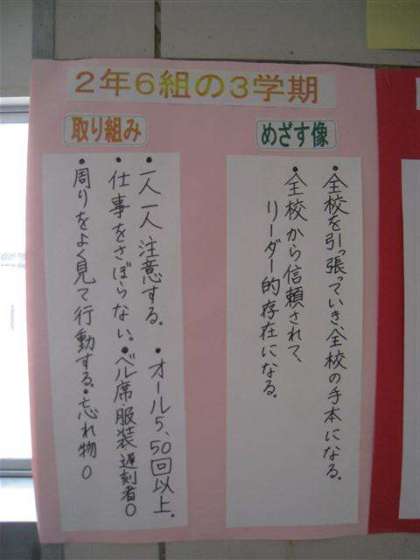 2年6組の3学期
めざす像
•全校を引っ張っていき全校の手本になる。
•全校から信頼されて、
リーダー的存在になる。
取り組み
•一人一人注意する。 •オール5、50回以上。
•仕事をさぼらない。•ベル席・服装・遅刻者0
•周りをよく見て行動する。•忘れ物0